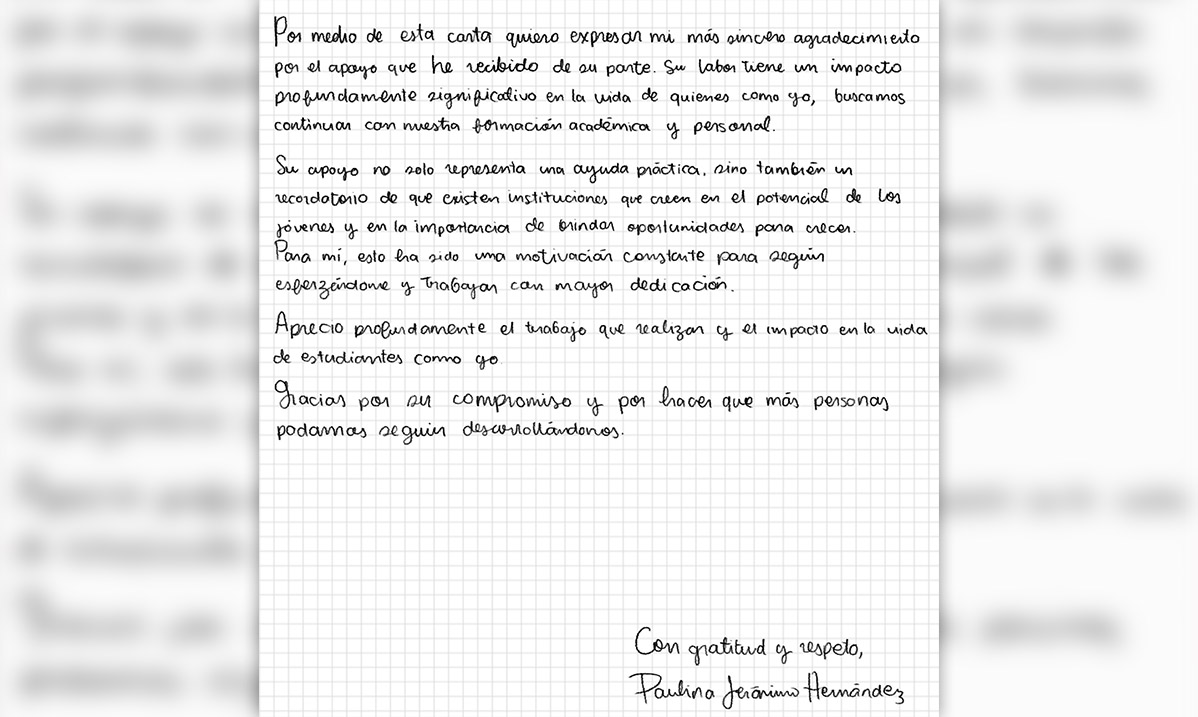 Por medio de esta carta quiero expresar mi más sincero agradecimiento
por el apoyo que he recibido de su parte. Su labor tiene un impacto
profundamente significativo en la vida de quienes como yo, buscamos
continuar con nuestra formación académica y personal.
Su apoyo no solo representa una ayuda práctica, sino también un
recordatorio de que existen instituciones que creen en el potencial de los
jóvenes y en la importancia de brindar oportunidades para crecer.
Para mí, esto ha sido una motivación constante para seguir
esforzándome y trabajar con mayor dedicación.
Aprecio profundamente el trabajo que realizan y el impacto en la vida
de estudiantes como yo.
Gracias por su compromiso y por hacer que más personas
podamos seguir desarrollándonos.
Con gratitud y respeto,
Paulina Jerónimo Hernández